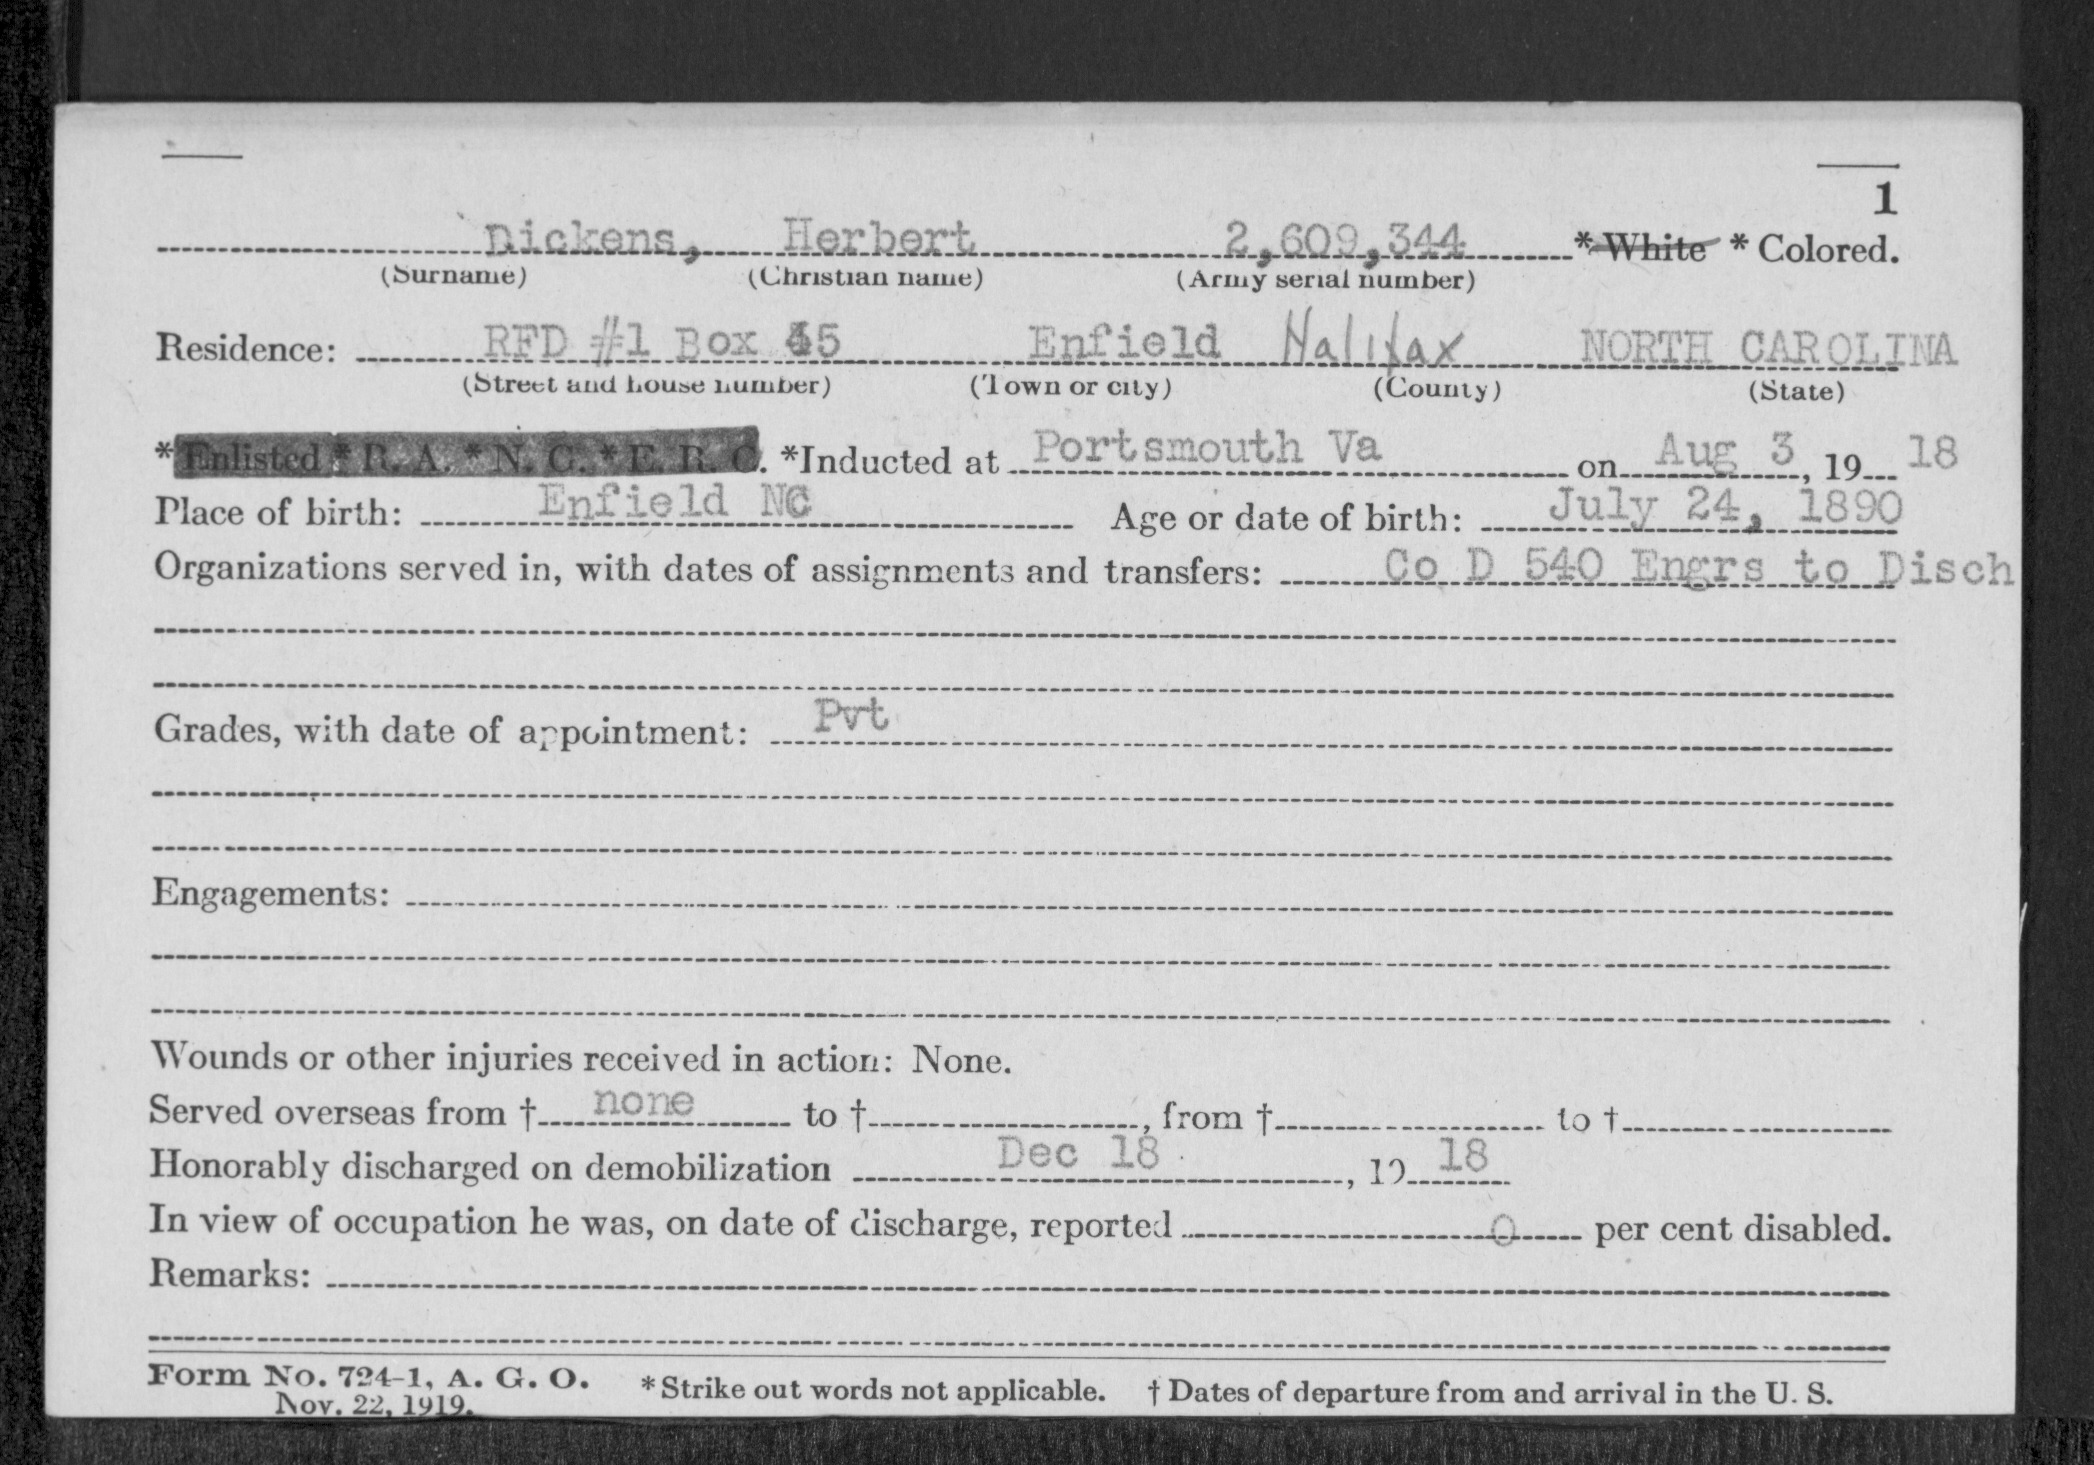 1
Dickens, Herbert 2,609,344 * White * Colored.
(Surname) (Christian name) (Army serial number)
Residence: RFD #1 Box 45 Enfield Halifax NORTH CAROLINA
(Street and house number) (Town or city) (County) (State)
* Enlisted * R. A. * N. G. * E. R. C. *Inducted at Portsmouth Va on Aug 3, 19 18
Place of birth: Enfield NC Age or date of birth: July 24, 1890
Organizations served in, with dates of assignments and transfers: Co D 540 Engrs to Disch
Grades, with date of appointment: Pvt
Engagements:
Wounds or other injuries received in action: None.
Served overseas from † none to †, from † to †
Honorably discharged on demobilization Dec 18, 19 18
In view of occupation he was, on date of discharge, reported 0 per cent disabled.
Remarks:
Form No. 724-1, A. G. O. * Strike out words not applicable. † Dates of departure from and arrival in the U. S.
Nov. 22, 1919.